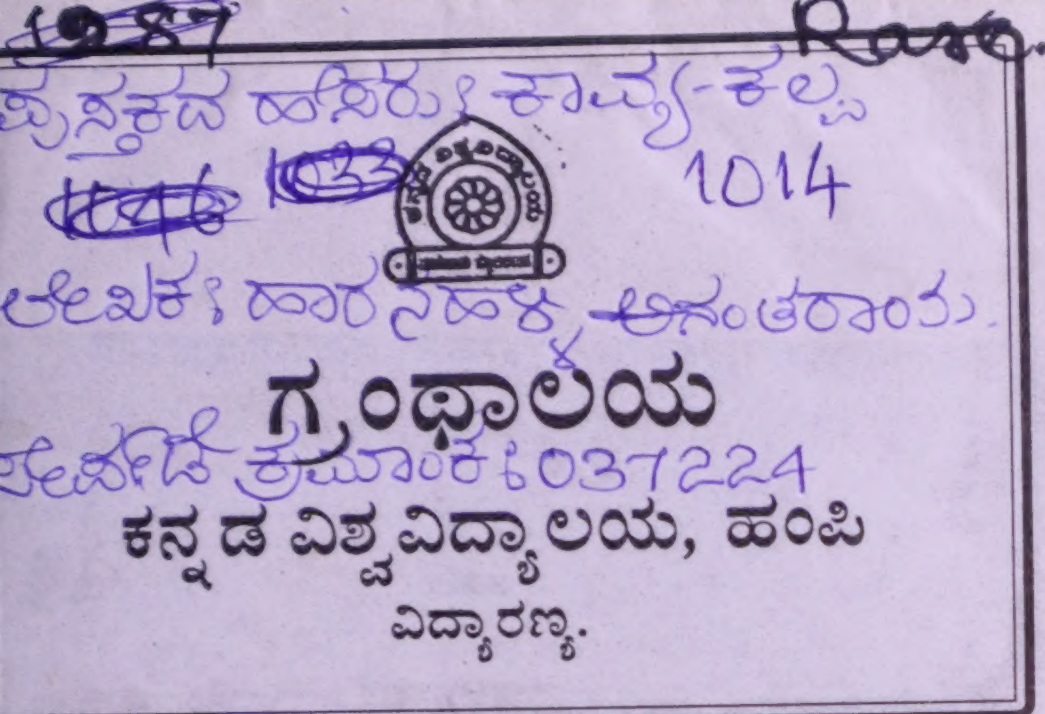 1987 Rare.
ಪುಸ್ತಕದ ಹೆಸರು: ಕಾವ್ಯ-ಕಲ್ಪ
1033 1014
ಕನ್ನಡ ವಿಶ್ವವಿದ್ಯಾಲಯ
ಲೇಖಕ: ಹಾರನಹಳ್ಳಿ ಅನಂತರಾಯ.
ಗ್ರಂಥಾಲಯ
ಸೇರ್ಪಡೆ ಕ್ರಮಾಂಕ: 037224
ಕನ್ನಡ ವಿಶ್ವವಿದ್ಯಾಲಯ, ಹಂಪಿ
ವಿದ್ಯಾರಣ್ಯ.